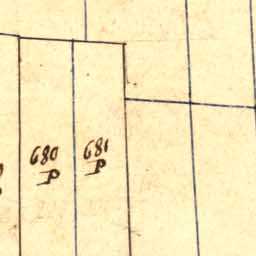 680
P
681
P